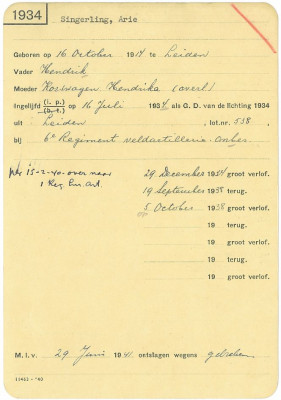 1934
Singerling, Arie
Geboren op 16 October 1914 te Leiden
Vader Hendrik
Moeder Koswagen Hendrika (overl)
Ingelijfd (l. p.) (b. t.) op 16 Juli 1934, als G. D. van de lichting 1934
uit Leiden, lot.nr. 538.
bij 6e Regiment veldartillerie
15-2-40 over naar
1 Reg. Art.
29 December 1934 groot verlof.
19 September 1938 terug.
5 October 1938 groot verlof.
19 terug.
19 groot verlof.
19 terug.
19 groot verlof.
M.i.v. 29 Juni 1941 ontslagen wegens gebreken
11463 - '40